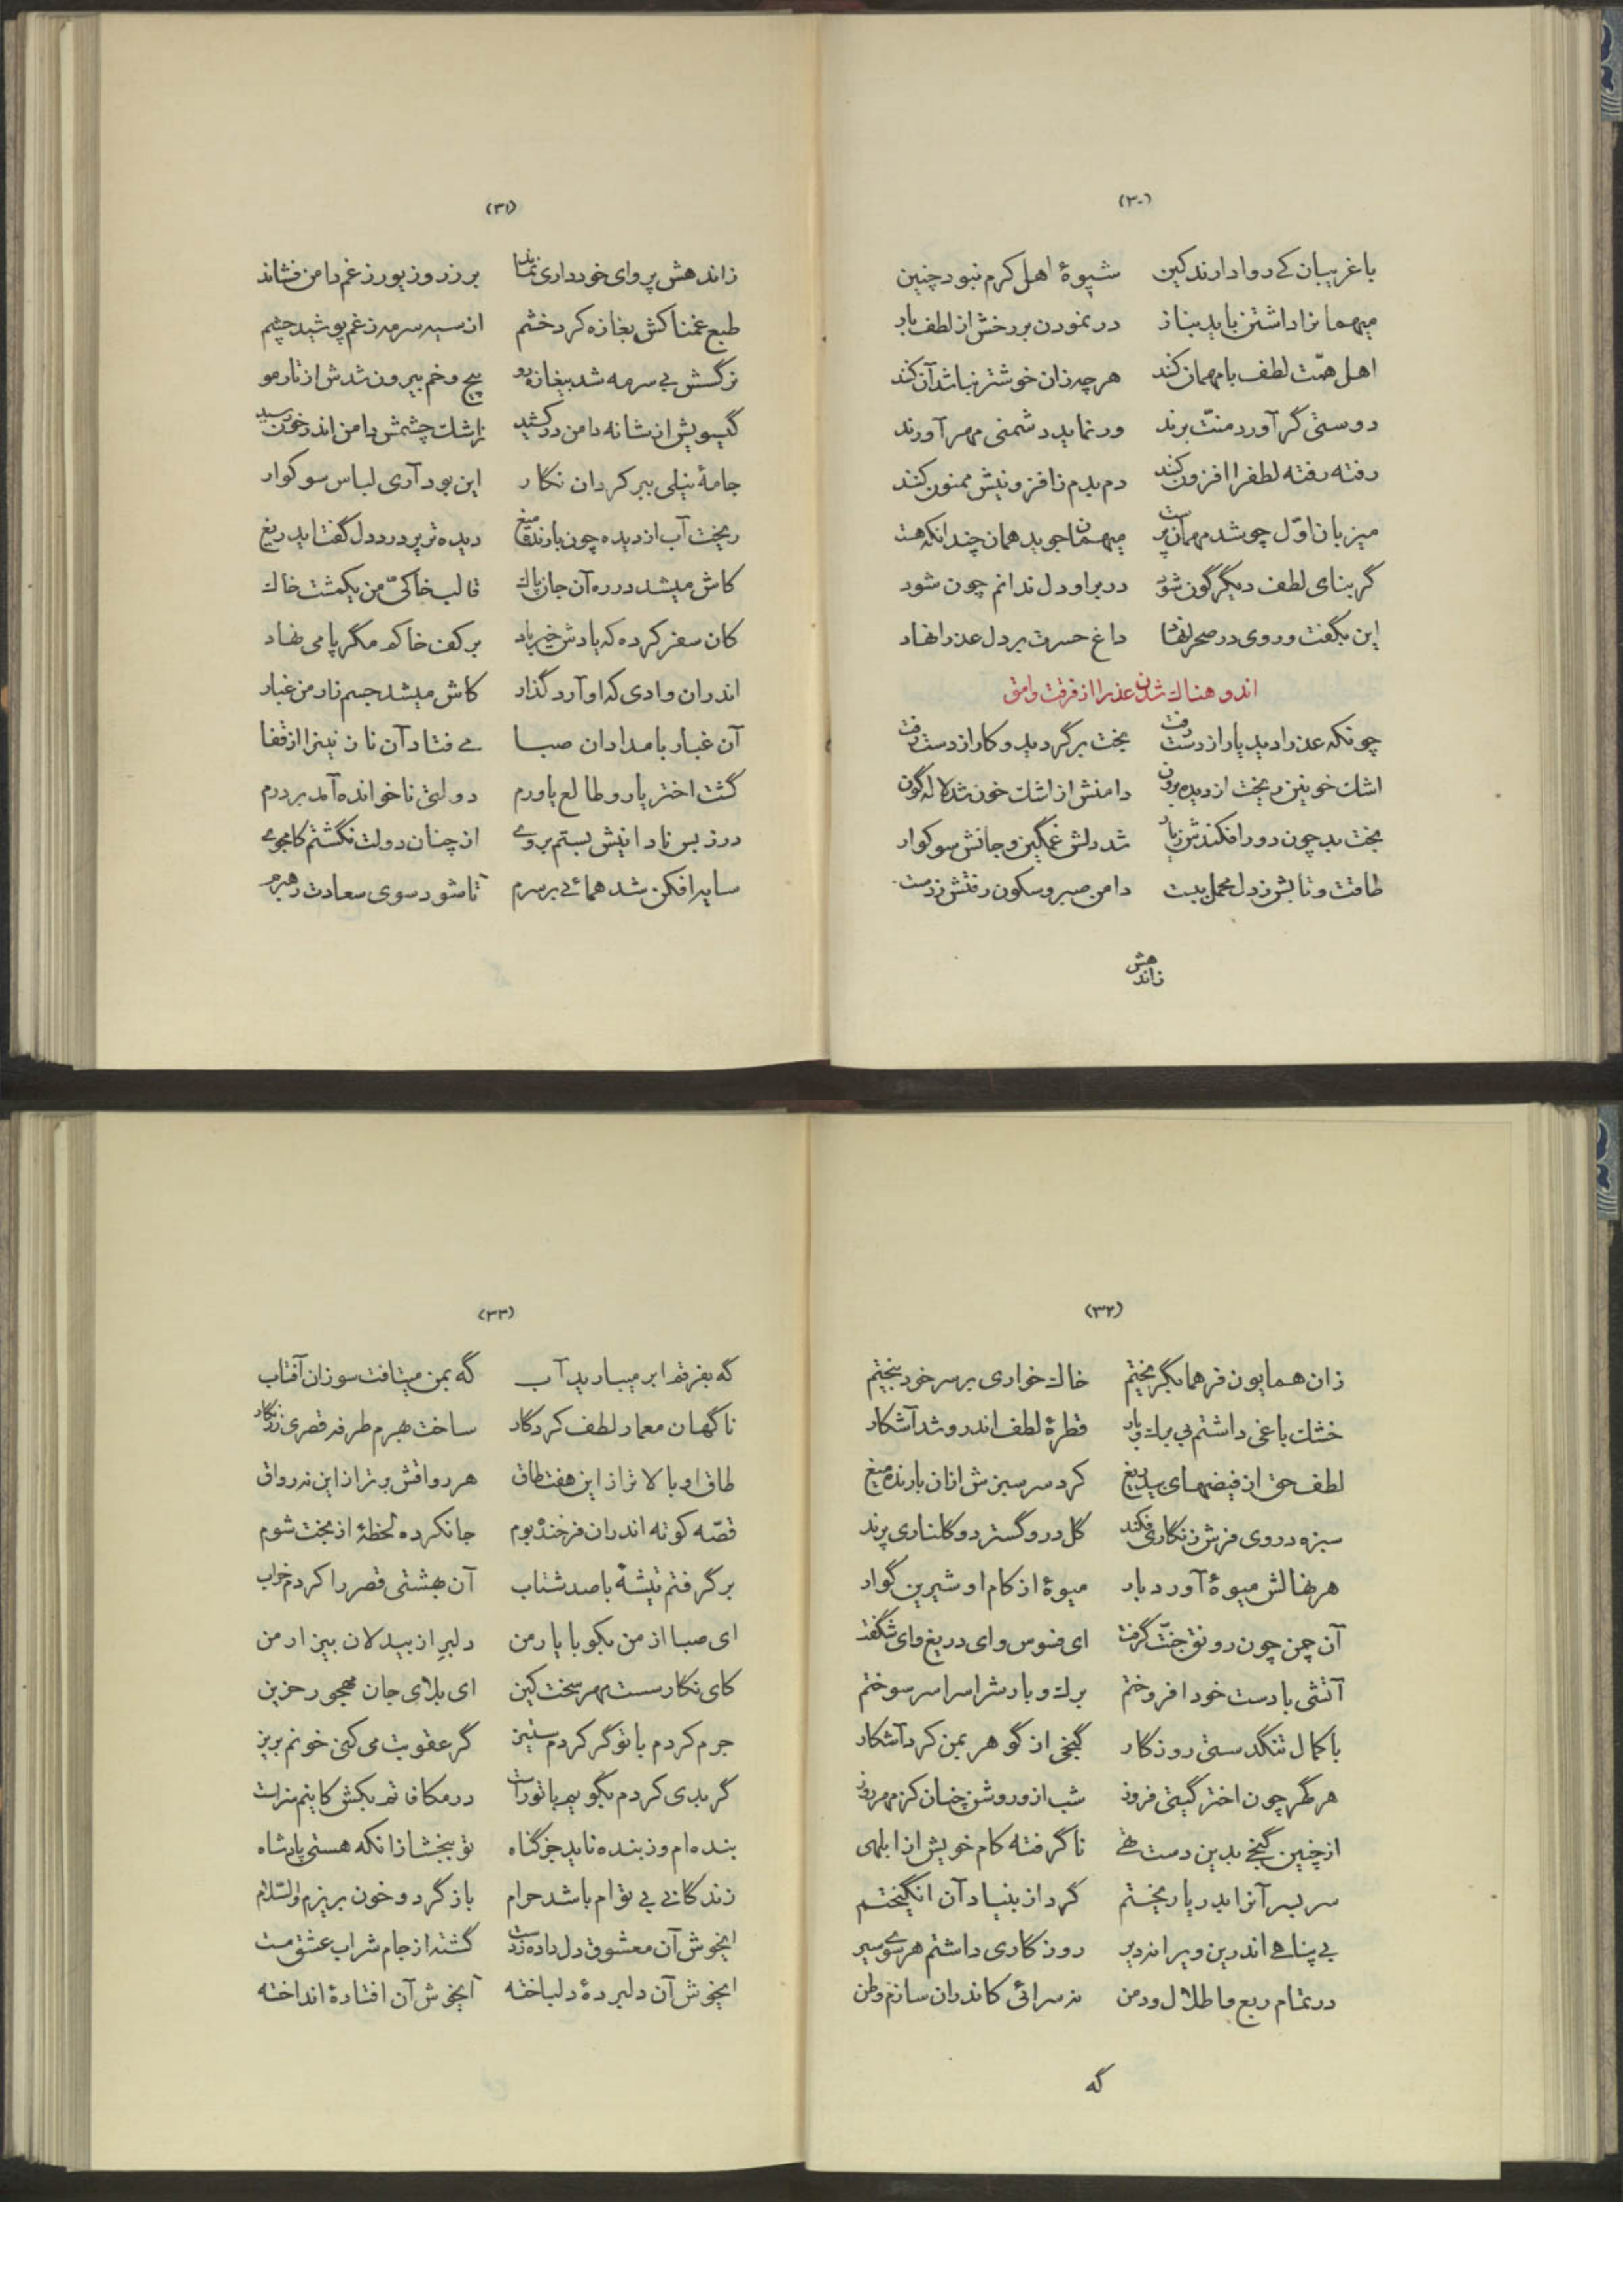 (۳۰)
با غریبان کے روا دارند کین شیوهٔ اهل کرم نبود چنین
میهمانرا داشتن باید بناز در نمودن بر رخش از لطف باز
اهل همّت لطف با مهمان کند هر چه زان خوشتر نباشد آن کند
دوستی گر آورد منّت برند ور نماید دشمنی مهر آورند
رفته رفته لطفرا افزون کنند دم بدم زافزونیش ممنون کنند
میزبان اوّل چو شد مهمان پرست میهمان جوید همان چندانکه هست
گر بنای لطف دیگرگون شود در بر او دل ندانم چون شود
این بگفت و روی در صحرا نهاد داغ حسرت بر دل عذرا نهاد
اندوهناك شدن عذرا از فرقت وامق
چونکه عذرا دید یار از دست رفت بخت برگردید و کار از دست رفت
اشك خونین ریخت از دیده برون دامنش از اشك خون شد لاله گون
بخت بد چون دور افکندش زیار شد دلش غمگین و جانش سوکوار
طاقت و تابش ز دل محمل ببست دامن صبر و سکون رفتش ز دست
زاندهش
(۳۱)
زاندهش پروای خودداری نماند بر زر و زیور ز غم دامن فشاند
طبع غمناکش بغازه کرد خشم از سیه سرمه ز غم پوشید چشم
نرگسش بی سرمه شد بیغازه رو پیچ و خم بیرون شدش از تار مو
گیسویش از شانه دامن در کشید ز اشك چشمش دامن اندر خون کشید
جامهٔ نیلی ببر کرد ان نگار این بود آری لباس سوکوار
ریخت آب از دیده چون بارنده میغ دیده تر پر درد دل گفتا بدریغ
کاش میشد در ره آن جان پاك قالب خاکیّ من یکمشت خاك
کان سفر کرده که یادش خیر باد بر کف خاکم مگر پا می نهاد
اندران وادی که او آرد گذار کاش میشد جسم زار من غبار
آن غبار بامدادان صبا مے فتاد آن نازنینرا از قفا
گشت اختر یار و طالع یاورم دولتی ناخوانده آمد بر درم
در ز بس نادانیش بستم بروے از چنان دولت نگشتم کامجوے
سایه افکن شد همائے بر سرم تا شود سوی سعادت رهبرم
(۳۲)
زان همایون فر هما بگریختم خاك خواری بر سر خود بیختم
خشك باغی داشتم بی برك و بار قطرهٔ لطف اندرو شد آشکار
لطف حق از فیضهای بیدریغ کرد سر سبزش ازان بارنده میغ
سبزه در روی فرش زنگاری فکند گل درو گسترد و گلناری پرند
هر نهالش میوهٔ آورد بار میوهٔ از کام او شیرین گوار
آن چمن چون رونق جنّت گرفت ای فسوس وای دریغ وای شگفت
آتشی با دست خود افروختم برك و بارشرا سراسر سوختم
با کمال تنگدستی روزگار گنجی از گوهر بمن کرد آشکار
هر گهر چون اختر گیتی فروز شب ازو روشن چنان کز مهر روز
از چنین گنجے بدین دست تهے ناگرفته کام خویش از ابلهی
سر بسر آنرا بدریا ریختم گرد از بنیاد آن انگیختم
بے پناهے اندرین ویرانه دیر روزگاری داشتم هر سوے سیر
در تمام ربع و اطلال و دمن نه سرائی کاندران سازم وطن
گه
(۳۳)
گه بفرقم ابر میبارید آب گه بمن میتافت سوزان آفتاب
ناگهان معمار لطف کردگار ساخت بهرم طرفه قصری زرنگار
طاق او بالا تر از این هفت طاق هر رواقش برتر از این نه رواق
قصّه کوته اندران فرخنده بوم جا نکرده لحظهٔ از بخت شوم
بر گرفتم تیشهٔ با صد شتاب آن بهشتی قصر را کردم خراب
ای صبا از من بگو با یار من دلبر از بیدلان بیزار من
کای نگار سست مهر سخت کین ای بلای جان مهجور حزین
جرم کردم با تو گر کردم ستیز گر عقوبت می کنی خونم بریز
گر بدی کردم بگویم با تو راست در مکافاتم بکش کاینم سزاست
بنده ام وز بنده ناید جز گناه تو ببخشا زانکه هستی پادشاه
زندگانے بے تو ام باشد حرام باز گرد و خون بریزم والسّلام
ایخوش آن معشوق دل داده ز دست گشته از جام شراب عشق مست
ایخوش آن دلبردهٔ دلباخته ایخوش آن افتادهٔ انداخته